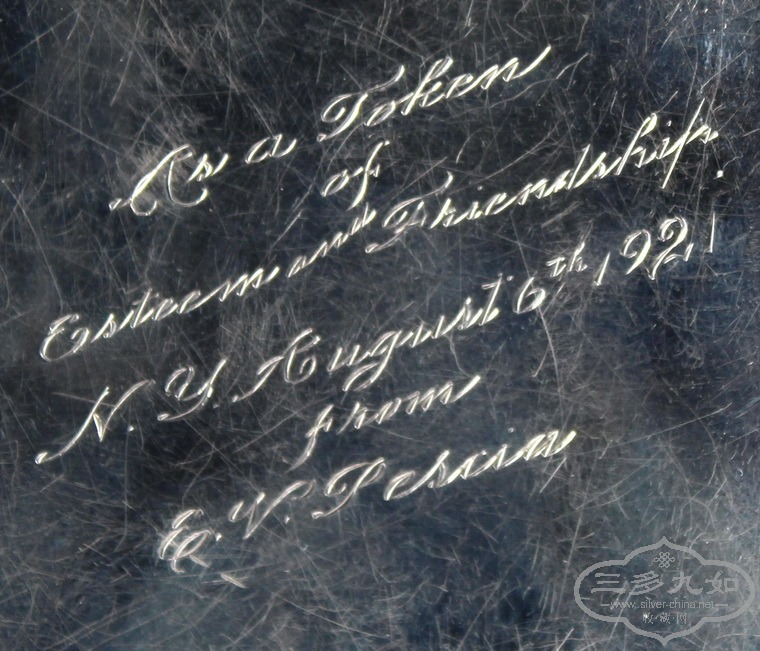 As a Token
of
Esteem and Friendship.
N. Y. August 6th 1921
from
E. V. Pescia
三多九如
www.silver-china.net
收·藏·网